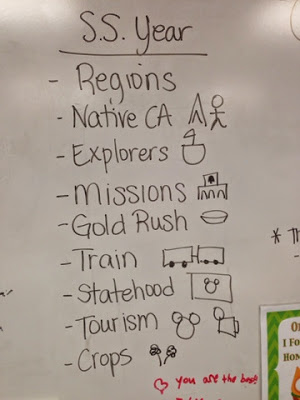 S.S. Year
- Regions
- Native CA
- Explorers
- Missions
- Gold Rush
- Train
- Statehood
- Tourism
- Crops
you are the best
* Th
I Fo